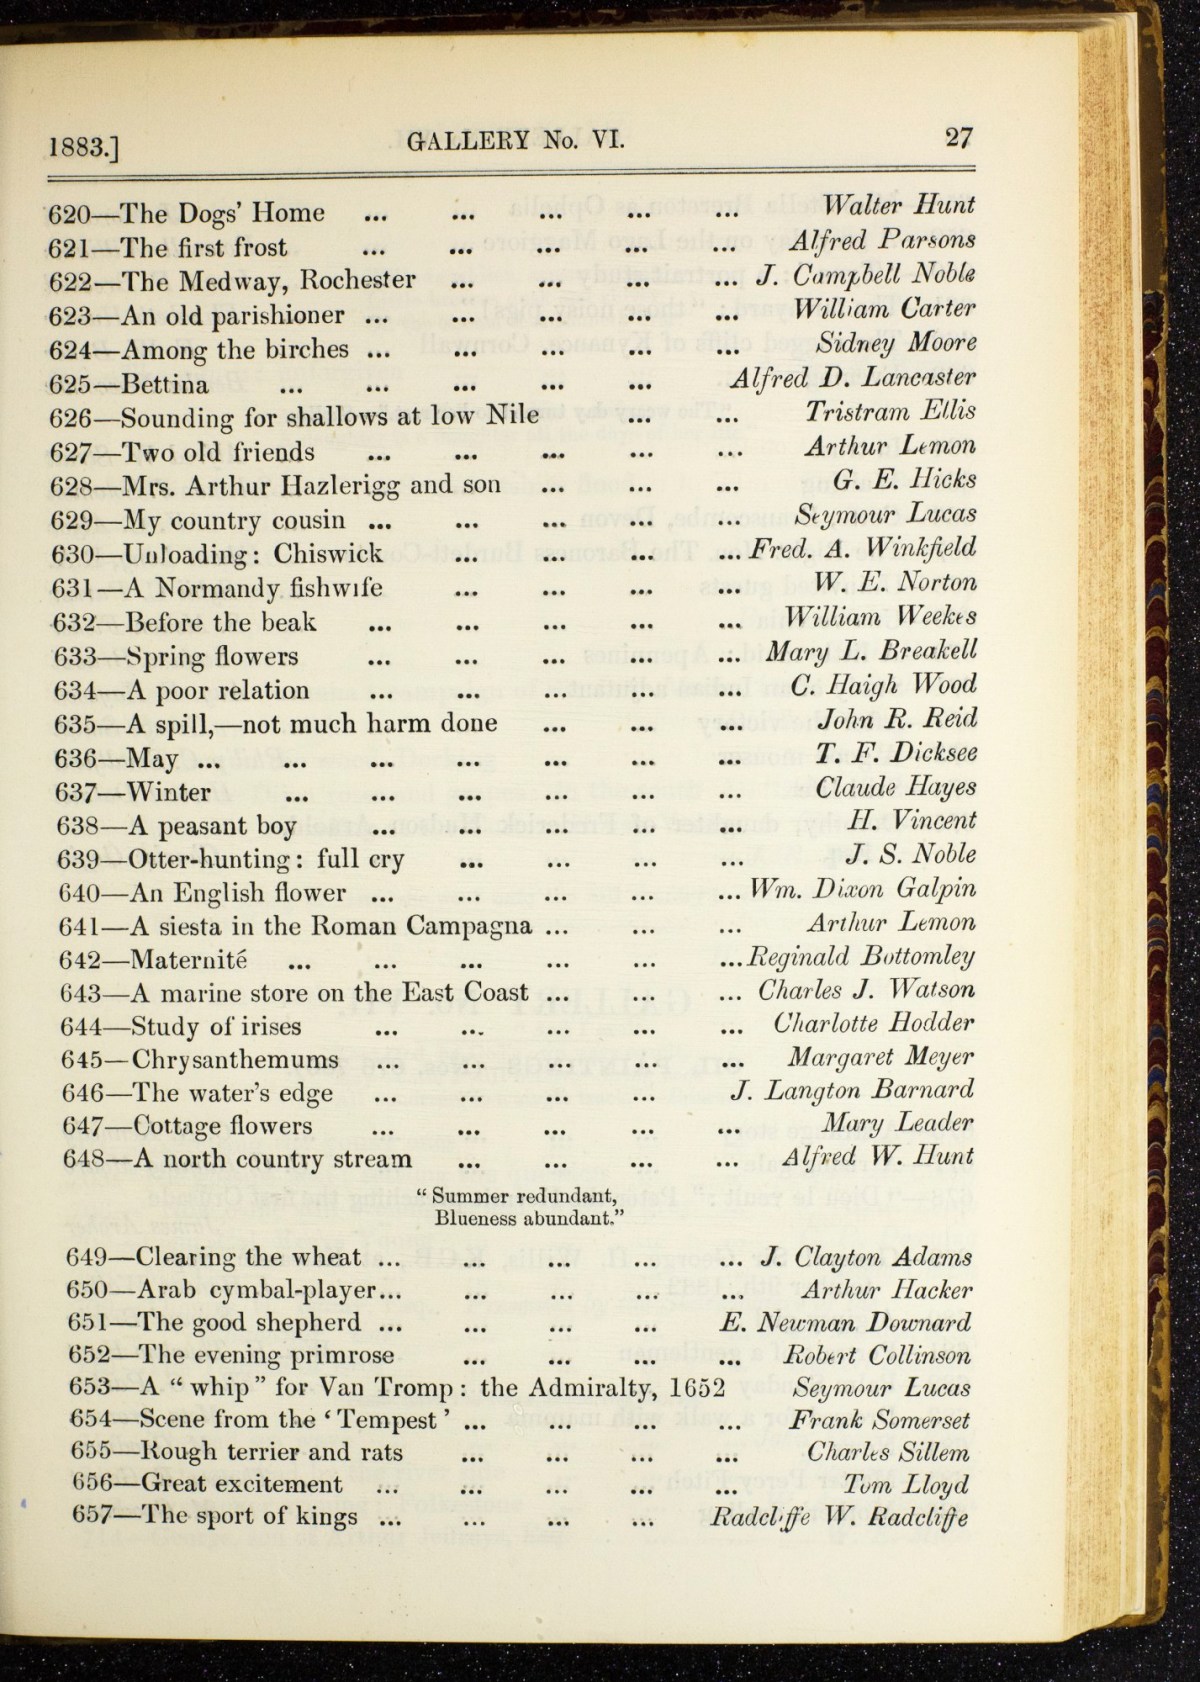 1883.] GALLERY No. VI. 27
620—The Dogs' Home ... ... ... ... ... Walter Hunt
621—The first frost ... ... ... ... ... Alfred Parsons
622—The Medway, Rochester ... ... ... ... J. Campbell Noble
623—An old parishioner ... ... ... ... ... William Carter
624—Among the birches ... ... ... ... ... Sidney Moore
625—Bettina ... ... ... ... ... Alfred D. Lancaster
626—Sounding for shallows at low Nile ... ... Tristram Ellis
627—Two old friends ... ... ... ... ... Arthur Lemon
628—Mrs. Arthur Hazlerigg and son ... ... ... G. E. Hicks
629—My country cousin ... ... ... ... ... Seymour Lucas
630—Unloading: Chiswick ... ... ... ... Fred. A. Winkfield
631—A Normandy fishwife ... ... ... ... W. E. Norton
632—Before the beak ... ... ... ... ... William Weekes
633—Spring flowers ... ... ... ... ... Mary L. Breakell
634—A poor relation ... ... ... ... ... C. Haigh Wood
635—A spill,—not much harm done ... ... ... John R. Reid
636—May ... ... ... ... ... ... ... T. F. Dicksee
637—Winter ... ... ... ... ... ... Claude Hayes
638—A peasant boy ... ... ... ... ... H. Vincent
639—Otter-hunting: full cry ... ... ... ... J. S. Noble
640—An English flower ... ... ... ... ... Wm. Dixon Galpin
641—A siesta in the Roman Campagna ... ... ... Arthur Lemon
642—Maternité ... ... ... ... ... ... Reginald Bottomley
643—A marine store on the East Coast ... ... ... Charles J. Watson
644—Study of irises ... ... ... ... ... Charlotte Hodder
645—Chrysanthemums ... ... ... ... ... Margaret Meyer
646—The water's edge ... ... ... ... J. Langton Barnard
647—Cottage flowers ... ... ... ... ... Mary Leader
648—A north country stream ... ... ... ... Alfred W. Hunt
"Summer redundant,
Blueness abundant."
649—Clearing the wheat ... ... ... ... ... J. Clayton Adams
650—Arab cymbal-player... ... ... ... ... Arthur Hacker
651—The good shepherd ... ... ... ... E. Newman Downard
652—The evening primrose ... ... ... ... Robert Collinson
653—A "whip" for Van Tromp: the Admiralty, 1652 Seymour Lucas
654—Scene from the 'Tempest' ... ... ... ... Frank Somerset
655—Rough terrier and rats ... ... ... ... Charles Sillem
656—Great excitement ... ... ... ... ... Tom Lloyd
657—The sport of kings ... ... ... ... Radcliffe W. Radcliffe